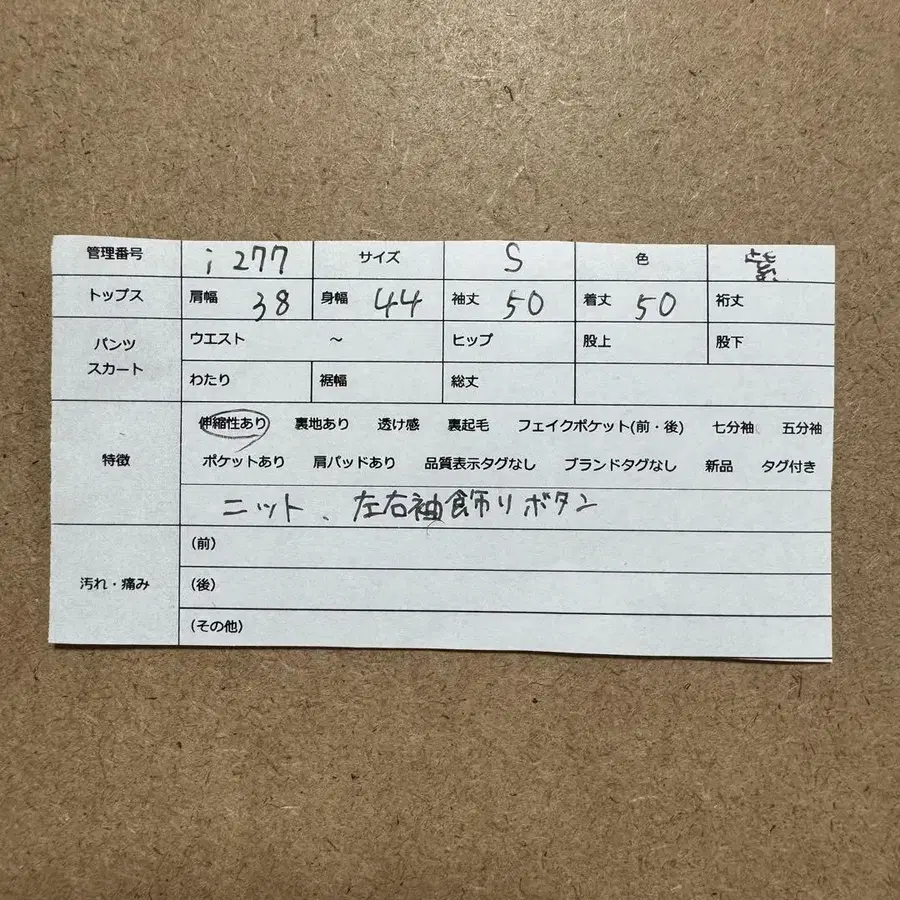 管理番号 i277 サイズ S 色 紫
トップス 肩幅 38 身幅 44 袖丈 50 着丈 50 裄丈
パンツ スカート
ウエスト ～ ヒップ 股上 股下
わたり 裾幅 総丈
特徴
伸縮性あり 裏地あり 透け感 裏起毛 フェイクポケット(前・後) 七分袖 五分袖
ポケットあり 肩パッドあり 品質表示タグなし ブランドタグなし 新品 タグ付き
ニット、左右袖飾りボタン
汚れ・痛み
(前)
(後)
(その他)